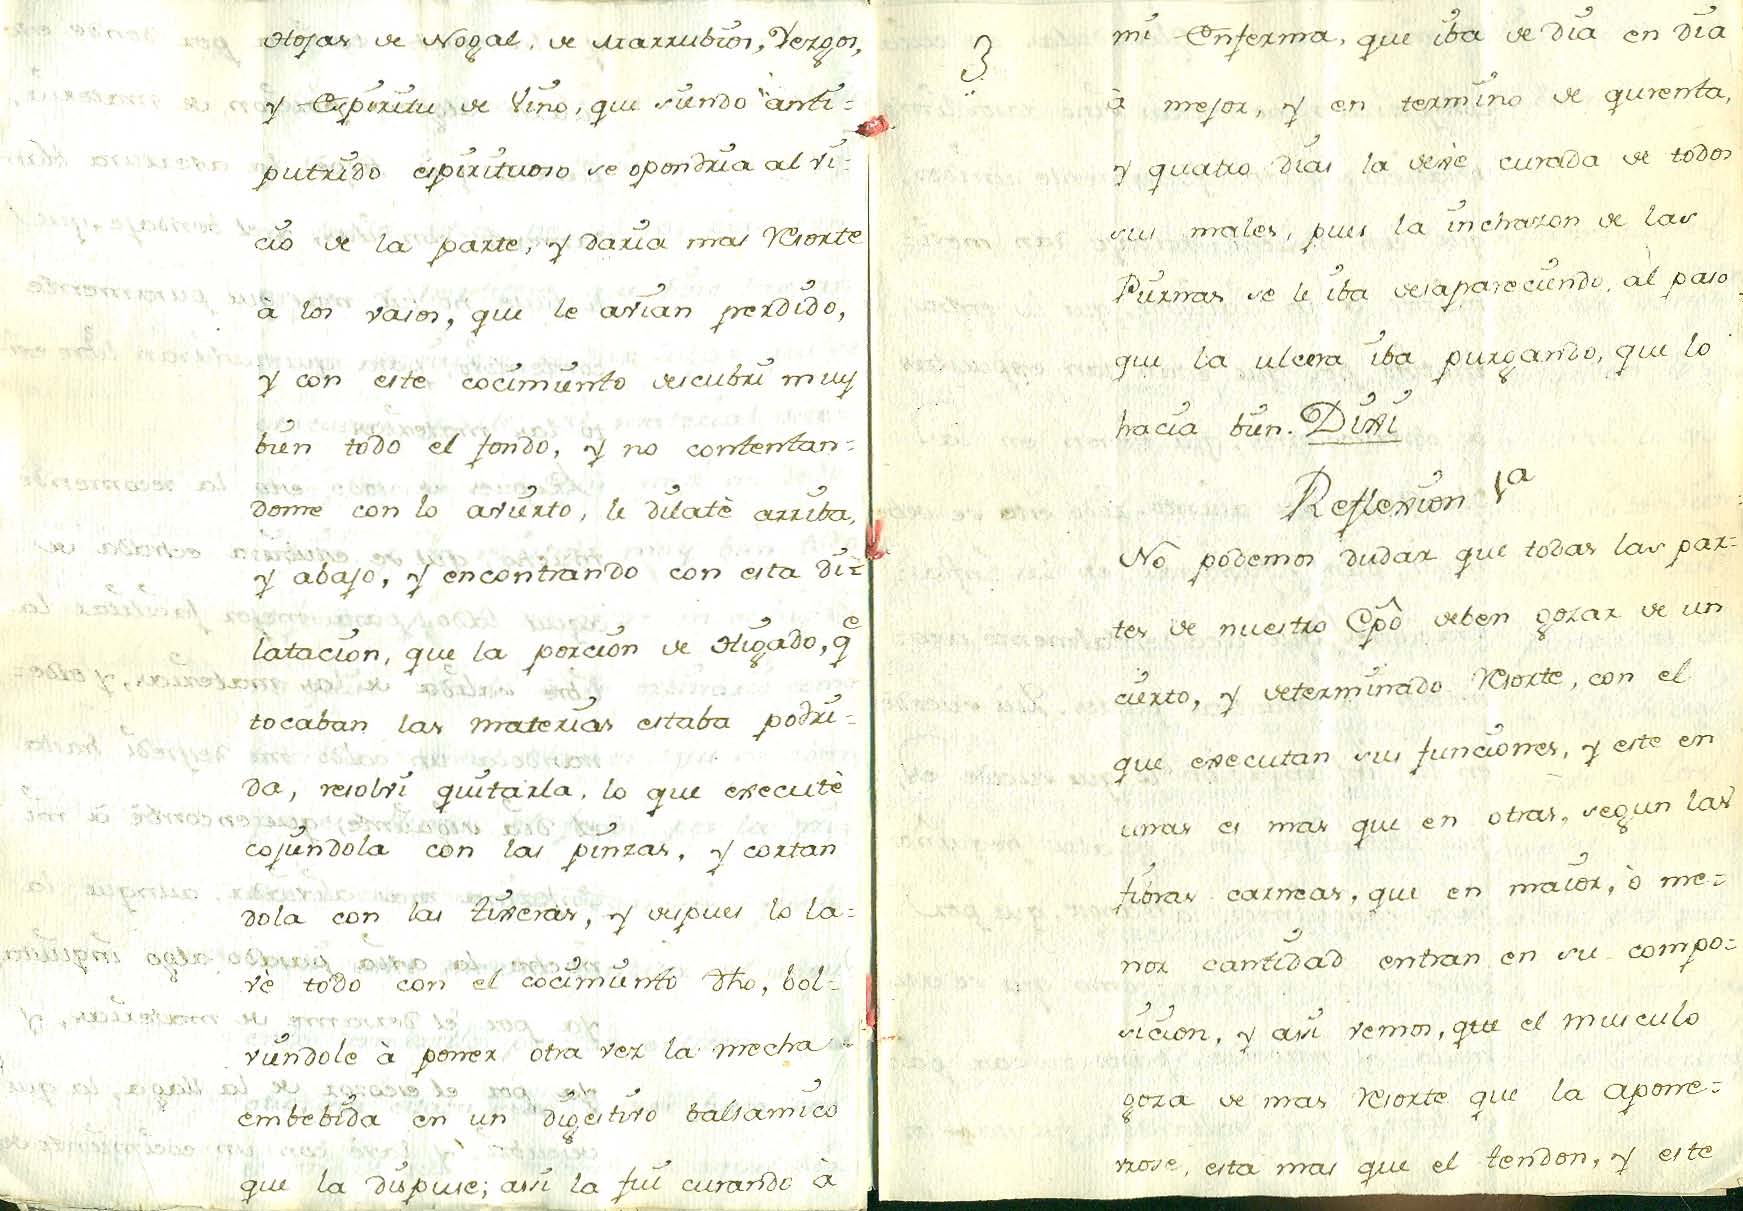 Hojas de Nogal, de Marrubios, Yezgos,
y Espiritu de Vino, que siendo anti=
putrido espirituoso se opondria al vi=
cio de la parte, y daria mas Resorte
à los vasos, que le avian perdido,
y con este cocimiento descubri muy
bien todo el fondo, y no contentan=
dome con lo avierto, le dilatè arriba,
y abajo, y encontrando con esta di=
latacion, que la porcion de Higado, qe
tocaban las materias estaba podri=
da, resolvi quitarla, lo que executè
cojiendola con las pinzas, y cortan
dola con las tixeras, y despues lo la=
vè todo con el cocimiento dho, bol=
viendole à poner otra vez la mecha
embebida en un digestivo balsamico
que la dispuse; assi la fui curando à
3
mi Enferma, que iba de dia en dia
à mejor, y en termino de qurenta,
y quatro dias la dexè curada de todos
sus males, pues la inchazon de las
Piernas se le iba desapareciendo, al paso
que la ulcera iba purgando, que lo
hacia bien. Dixi
Reflexion 1a
No podemos dudar que todas las par=
tes de nuestro Cpô deben gozar de un
cierto, y determinado Resorte, con el
que executan sus funciones, y este en
unas es mas que en otras, segun las
fibras carneas, que en maior, ò me=
nor cantidad entran en su compo=
sicion, y assi vemos, que el musculo
goza de mas Resorte que la apone=
vrose, esta mas que el tendon, y este